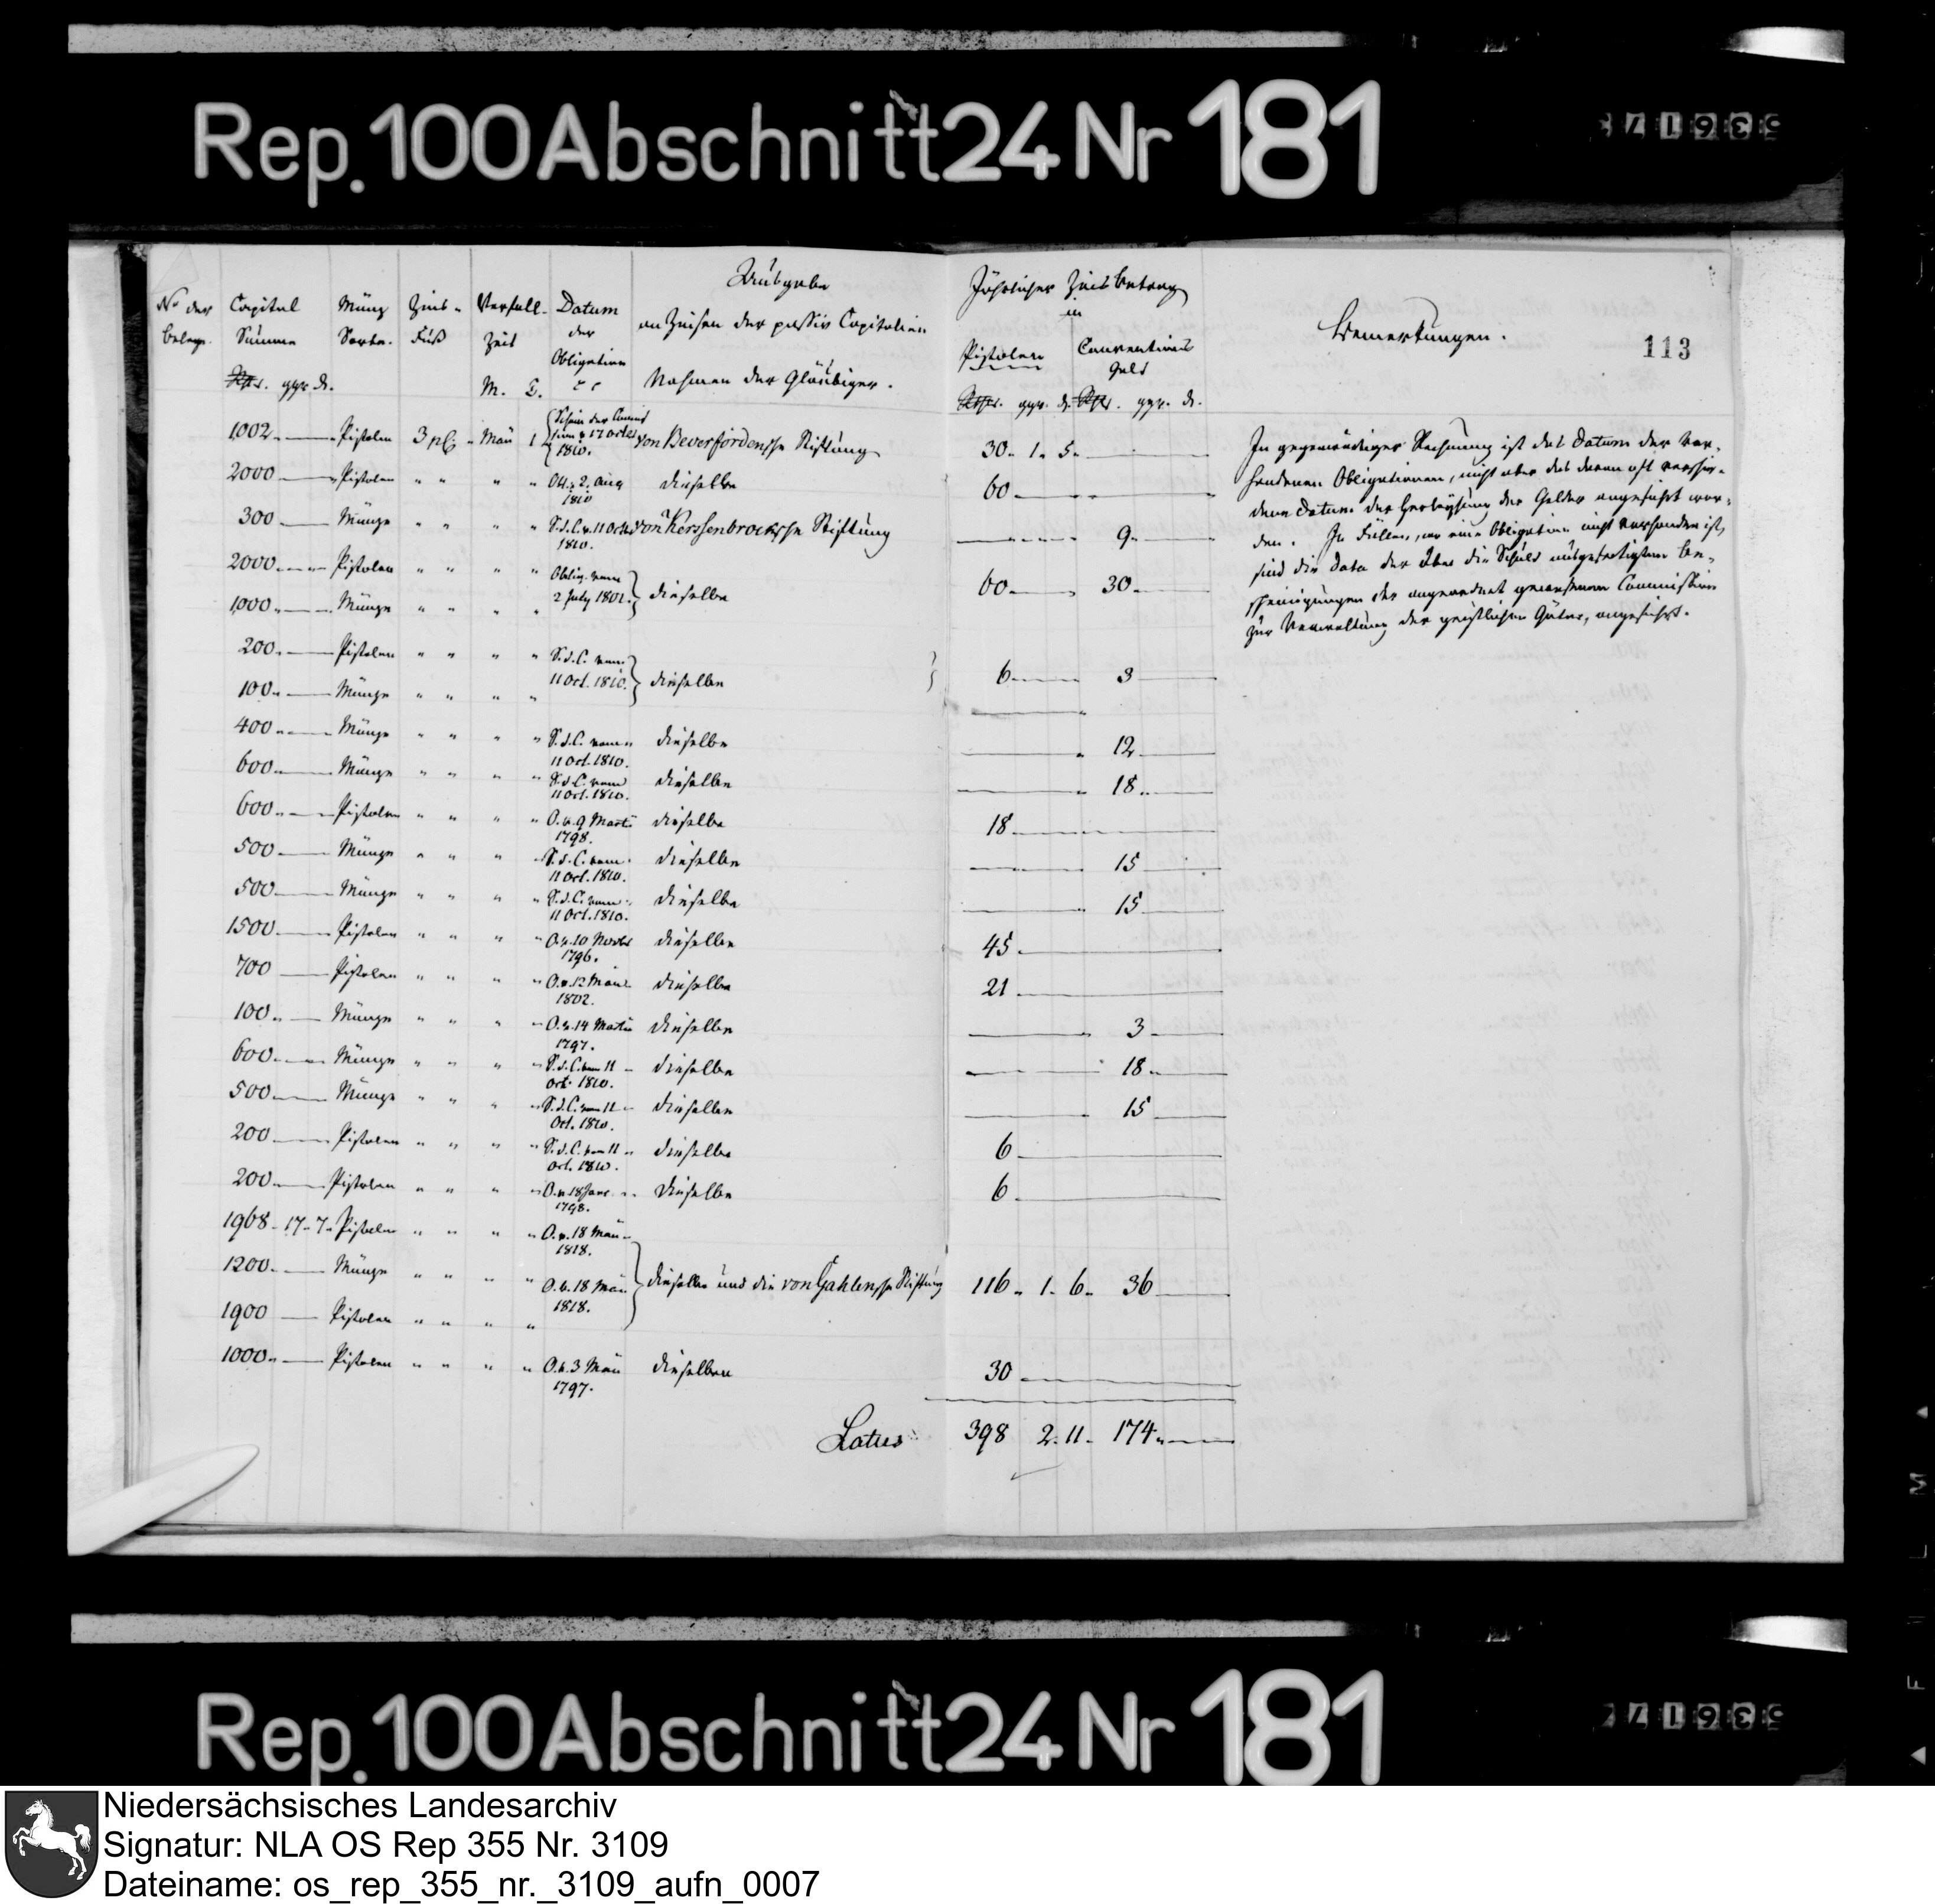 Rep. 100 Abschnitt 24 Nr 181
536178
Ausgabe
Jährlicher Zins betrag
in
Bemerkungen.
113
No der Capital Münz Zins- Verfall- Datum
an Zinsen der passiv Capitalien
belege. Summe Sorte. Fuß Zeit der
Obligation
Pistolen Conventions
Geld
Rthlr. ggr. d. M. T. Nahmen der Gläubiger.
Rthlr. ggr. d. Rthlr. ggr. d.
1,002 Pistolen 3 pC. Maii 1 1810. von Beverfördensche Stiftung 30. 1. 5.
2000 Pistolen " " " " Obl. v. 2. Aug 1810 dieselbe 60
300 Münze " " " " S.d.C. v. 11 Octob 1810. von Kerssenbrocksche Stiftung 9.
2000 Pistolen " " " " Oblig. vom 2 July 1802. dieselbe 60 30
1,000 Münze " " " "
200 Pistolen " " " " S.d.C. vom 11 Oct. 1810. dieselbe 6 3
100 Münze " " " "
400 Münze " " " " S.d.C. vom 11 Oct. 1810. dieselbe 12
600 Münze " " " " S.d.C. vom 11 Oct. 1810. dieselbe 18
600 Pistolen " " " " O.v. 9 Martii 1798. dieselbe 18
500 Münze " " " " S.d.C. vom 11 Oct. 1810. dieselbe 15
500 Münze " " " " S.d.C. vom 11 Oct. 1810. dieselbe 15
1500 Pistolen " " " " O.v. 10 Novbr 1796. dieselbe 45
700 Pistolen " " " " O.v. 12 Maii 1802. dieselbe 21
100 Münze " " " " O.v. 14 Martii 1797. dieselbe 3
600 Münze " " " " S.d.C. vom 11 Oct. 1810. dieselbe 18
500 Münze " " " " S.d.C. vom 11 Oct. 1810. dieselbe 15
200 Pistolen " " " " S.d.C. vom 11 Oct. 1810. dieselbe 6
200 Pistolen " " " " O.v. 18 Janr 1798. dieselbe 6
1968. 17. 7. Pistolen " " " " O.v. 18 Maii 1818.
1200 Münze " " " " O.v. 18 Maii 1818. dieselbe und die von Gahlensche Stiftung 116. 1. 6. 36
1900 Pistolen " " " "
1000 Pistolen " " " " O.v. 3 Maii 1797. dieselben 30
Latus 398 2. 11. 174
In gegenwärtiger Rechnung ist das Datum der vor-
handenen Obligationen, nicht aber das deren oft verschie-
dene Datum der Herleyhung der Gelder angeführt wor-
den. In Fällen, wo eine Obligation nicht vorhanden ist,
sind die Data der über die Schuld ausgefertigten be-
scheinigungen der angeordnet gewesenen Commission
zur Verwaltung der geistlichen Güter, angeführt.
Rep. 100 Abschnitt 24 Nr 181
Niedersächsisches Landesarchiv
Signatur: NLA OS Rep 355 Nr. 3109
Dateiname: os_rep_355_nr._3109_aufn_0007